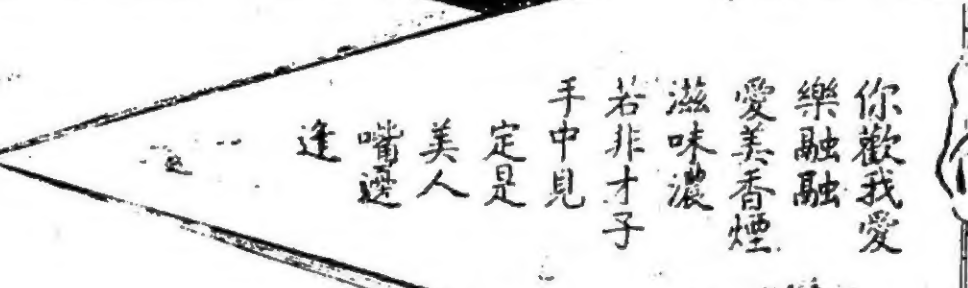 你歡我愛
樂融融
愛美香煙
滋味濃
若非才子
手中見
定是
美人
嘴邊
逢